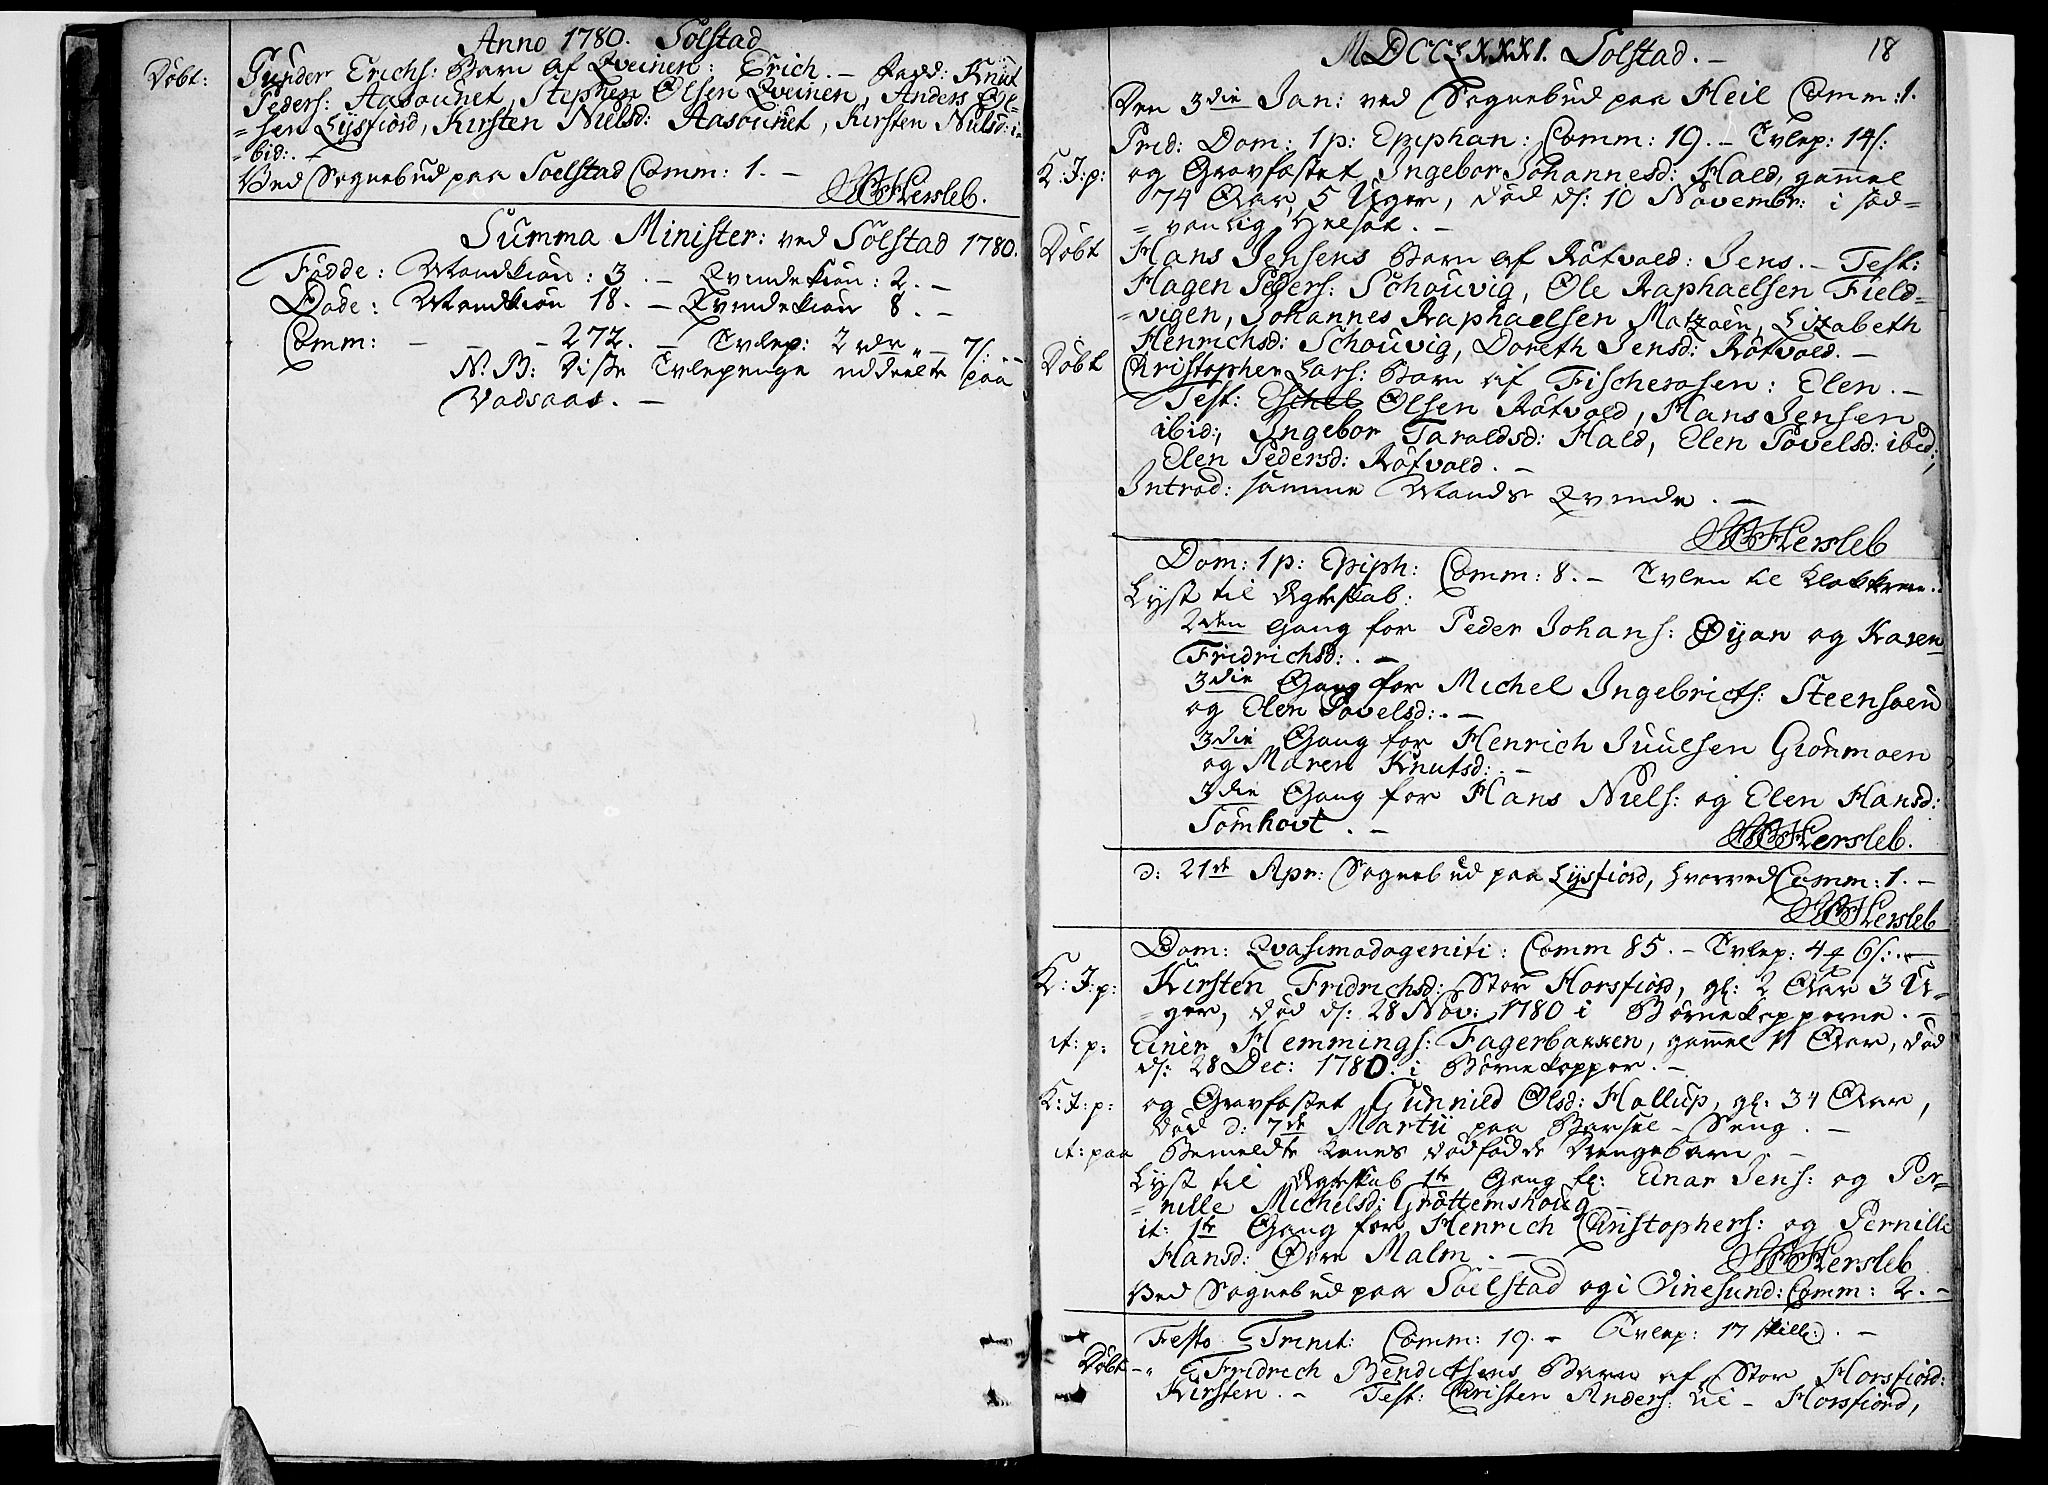 Anno 1780. Sölstad
Döbt: Gunder Erichs: Barn af Qveinen: Erich. – Fadd: Knut
Peders: Aasounet, Stephen Olsen Qveinen, Anders
=sen Lysfiord, Kirsten Nielsd: Aasounet, Kirsten Nielsd: i=
=bid: –
Ved Sognebud paa Soelstad Comm: 1. –
Hersleb.
Summa Minister: ved Sölstad 1780.
Födde: Mandkiön: 3. – Qvindekiön: 2. –
Döde: Mandkiön 18. – Qvindekiön 8. –
Comm: – – – 272. – Tvlep: 2 rdr „ – 7 s:
N.B: Disse Tvlepenge uddeelte paa
Vadsaas. –
MDCCLXXXI. Solstad. – 18
Den 3die Jan: ved Sognebud paa Heil Comm: 1.
Præd: Dom: 1 p: Epiphan: Comm: 19. – Tvlep: 14 s:
K: J: p: og Gravfæstet Ingebor Johannesd: Hald, gammel
74 Aar, 5 Uger, död d: 10 Novembr: i sæd=
=vanlig Helsot. –
Döbt Hans Jensens Barn af Rötvold: Jens. – Test:
Hagen Peders: Schouvig, Ole Raphaelsen Field=
=vigen, Johannes Raphaelsen Matzöen, Lizabeth
Henrichsd: Schouvig, Doreth Jensd: Rötvold. –
Döbt Christopher Lars: Barn af Fischerosen: Elen. –
Test: Eschel Olsen Rötvold, Hans Jensen
ibid:, Ingebor Taraldsd: Hald, Elen Povelsd: ibid:,
Elen Pedersd: Rötvold. –
Introd: samme Mands Qvinde. –
Hersleb
Dom: 1 p: Epiph: Comm: 8. – Tvlen til Klokkeren.
Lyst til Ægteskab:
2den Gang for Peder Johans: Öyan og Karen
Fridrichsd: . –
3die Gang for Michel Ingebricts: Steensöen
og Elen Povelsd: . –
3die Gang for Henrich Juulsen Grönmoen
og Maren Knutsd: . –
3die Gang for Hans Niels: og Elen Hansd:
Tömhovt. –
Hersleb.
d: 21de Apr: Sognebud paa Lysfiord, hvorved Comm: 1. –
Hersleb
Dom: Qvasimodogeniti: Comm 85. – Tvlep: 4 6 s:
K: J: p: Kirsten Fridrichsd: Stor Horsfiord, gl: 2 Aar 3 U=
=ger, död d: 28 Nov: 1780 i Börnekopperne. –
it: p: Einer Hemmings: Fagerbakken, gammel 11 Aar, död
d: 28 Dec: 1780. i Börnekopper. –
K: J: p: og Gravfæstet Gunnild Olsd: Hallup, gl: 34 Aar,
död d: 7de Martii paa Barsel-Seng. –
it: paa Bemeldte Kones dödfödde Drengebarn. –
Lyst til Ægteskab 1te Gang for: Einar Jens: og Per=
=nille Michelsd: Gröttemshoug. –
it: 1te Gang for Henrich Christophers: og Pernille
Hansd: Övre Malm. – Hersleb
Ved Sognebud paa Soelstad og i Vinesund: Comm: 2. –
Festo Trinit: Comm: 19. – Tvlep: 17 skill:. –
Döbt –„ Fridrich Bendictsens Barn af Stor Horsfiord:
Kirsten. – Test: Christen Anders: Lil-Horsfiord,